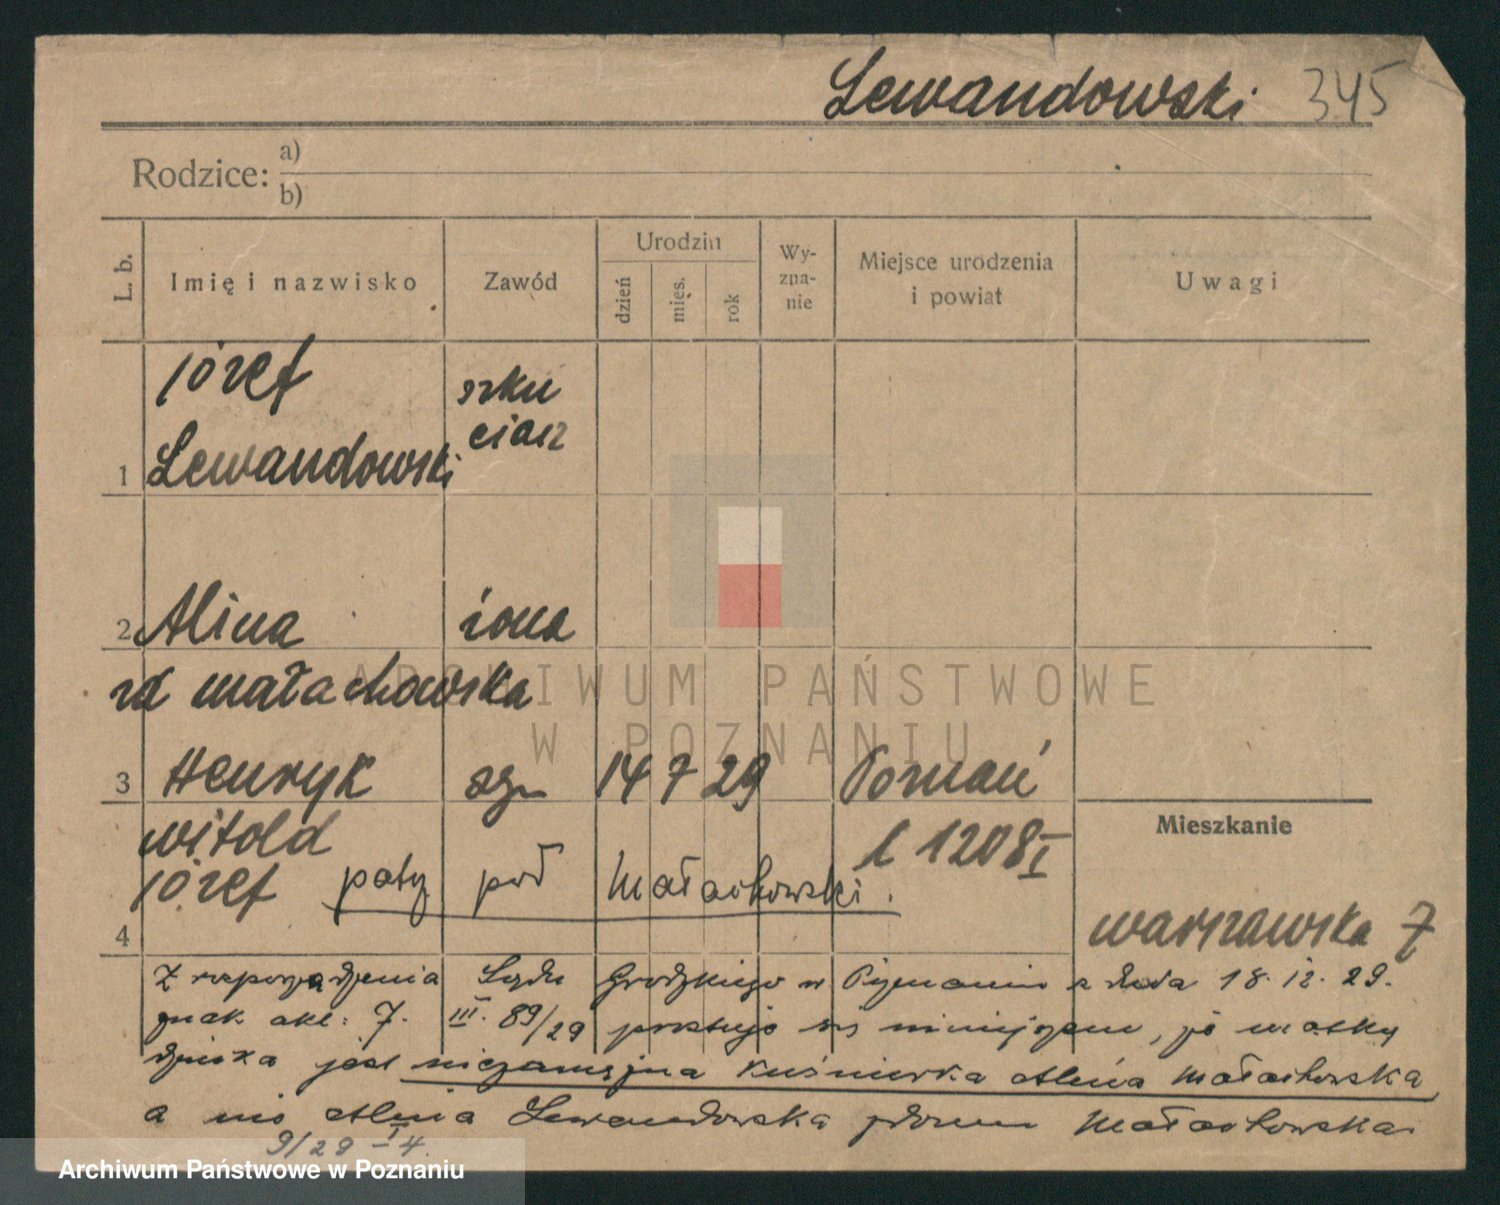 Lewandowski 345
Rodzice: a)
b)
L. b. Imię i nazwisko Zawód Urodzin dzień mięs. rok Wyznanie Miejsce urodzenia i powiat Uwagi
józef szku
Lewandowski ciarz
1
2 Alina żona
zd małachowska
ARCHIWUM PAŃSTWOWE
W POZNANIU
3 Henryk syn 14 7 29 Poznań
witold l 1208 I
józef patrz pod Małachowski.
Mieszkanie
warszawska 7
4
Z rozporządzenia Sądu Grodzkiego w Poznaniu z dnia 18. 12. 29.
znak akt: 7. III. 89/29 prostuje się niniejszem, że matką
dziecka jest niezamężna kuśnierka Alina Małachowska
a nie Alina Lewandowska zdomu Małachowska.
9/29 I 4.
Archiwum Państwowe w Poznaniu